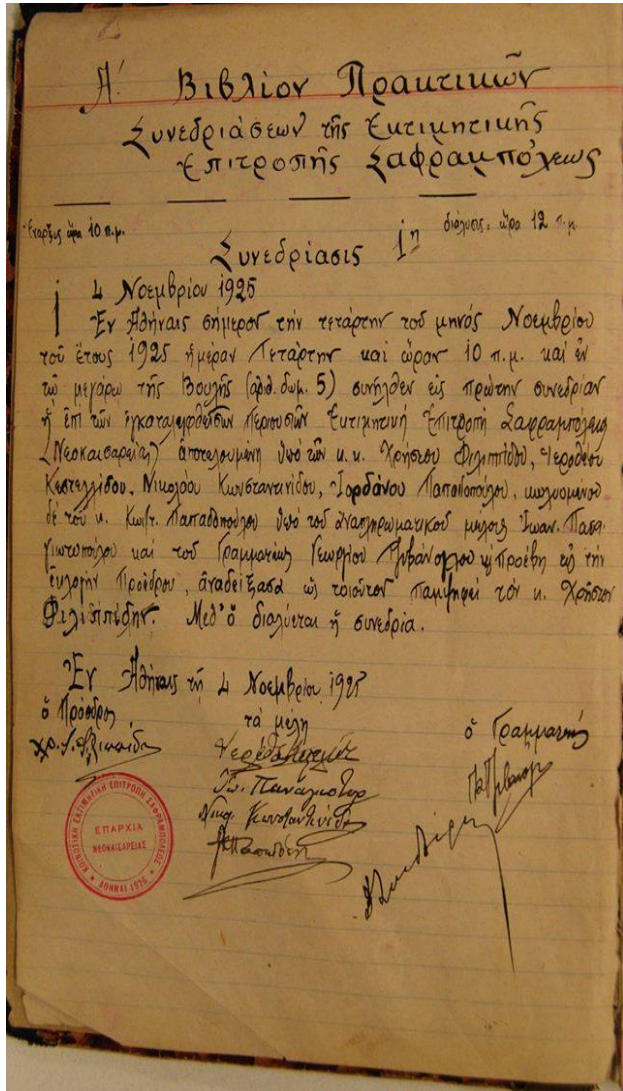 Α! Βιβλίον Πρακτικῶν
Συνεδριάσεων τῆς Ἐκτιμητικῆς
Ἐπιτροπῆς Σαφραμπόλεως
Ἔναρξις ὥρα 10 π.μ.
διάλυσις ὥρα 12 π.μ
Συνεδρίασις 1η
4 Νοεμβρίου 1925
Ἐν Ἀθήναις σήμερον τὴν τετάρτην τοῦ μηνός Νοεμβρίου
τοῦ ἔτους 1925 ἡμέραν Τετάρτην καί ὥραν 10 π.μ. καί ἐν
τῷ μεγάρῳ τῆς Βουλῆς (ἀριθ. δωμ. 5) συνῆλθεν εἰς πρώτην συνεδρίαν
ἡ ἐπί τῶν ἐγκαταλειφθεισῶν περιουσιῶν Ἐκτιμητική Ἐπιτροπή Σαφραμπόλεως
(Νεοκαισαρείας) ἀποτελουμένη ὑπό τῶν κ.κ. Χρήστου Φιλιππίδου, Ἱεροθέου
Κεστελλίδου, Νικολάου Κωνσταντινίδου, Ἰορδάνου Παπαδοπούλου, κωλυομένου
δέ τοῦ κ. Κωνστ. Παπαδοπούλου ὑπό τοῦ ἀναπληρωματικοῦ μέλους Ἰωαν. Πανα
γιωτοπούλου καί τοῦ Γραμματέως Γεωργίου προέβη εἰς τήν
ἐκλογήν Προέδρου, ἀναδείξασα ὡς τοιοῦτον παμψηφεί τόν κ. Χρῆστον
Φιλιππίδην. Μεθ' ὅ διαλύεται ἡ συνεδρία.
Ἐν Ἀθήναις τῇ 4 Νοεμβρίου 1925
ὁ Πρόεδρος
τά μέλη
ὁ Γραμματεύς
Νικ. Κωνσταντινίδης
ΚΟΙΝΟΤΙΚΗ ΕΚΤΙΜΗΤΙΚΗ ΕΠΙΤΡΟΠΗ ΣΑΦΡΑΜΠΟΛΕΩΣ
ΕΠΑΡΧΙΑ
ΝΕΟΚΑΙΣΑΡΕΙΑΣ
ΑΘΗΝΑΙ 1925